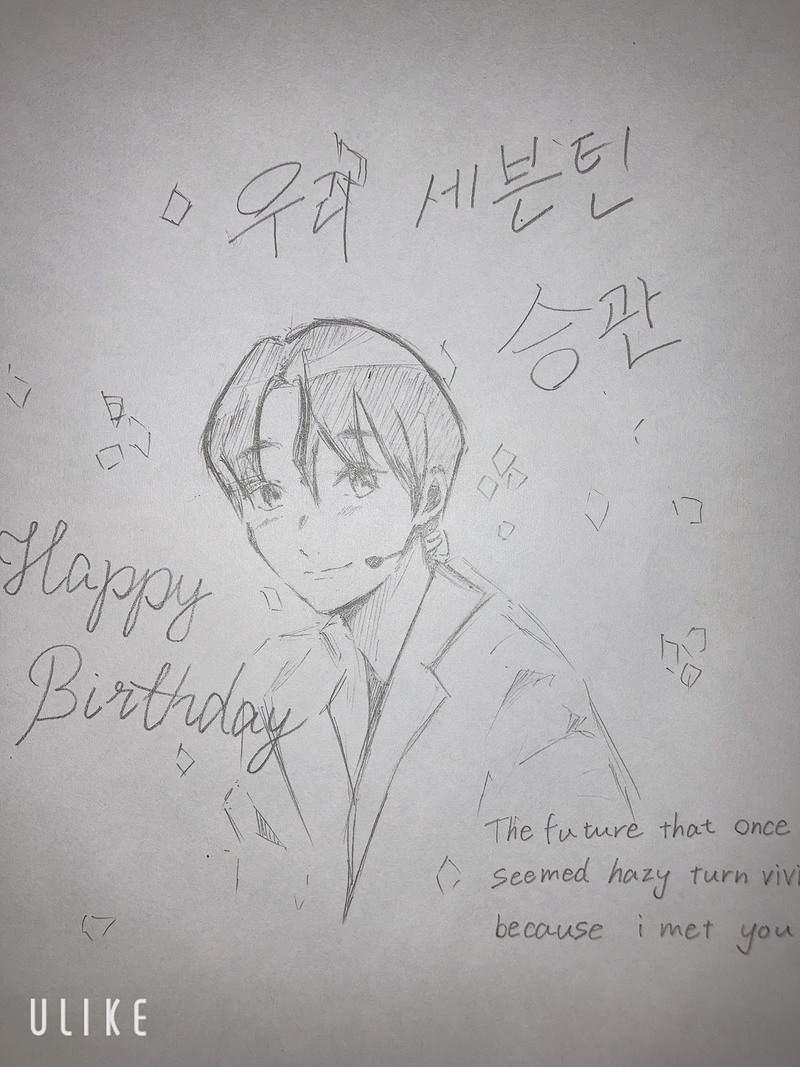 우리 세븐틴
승관
Happy
Birthday
The future that once
seemed hazy turn vivi
because i met you
ULIKE